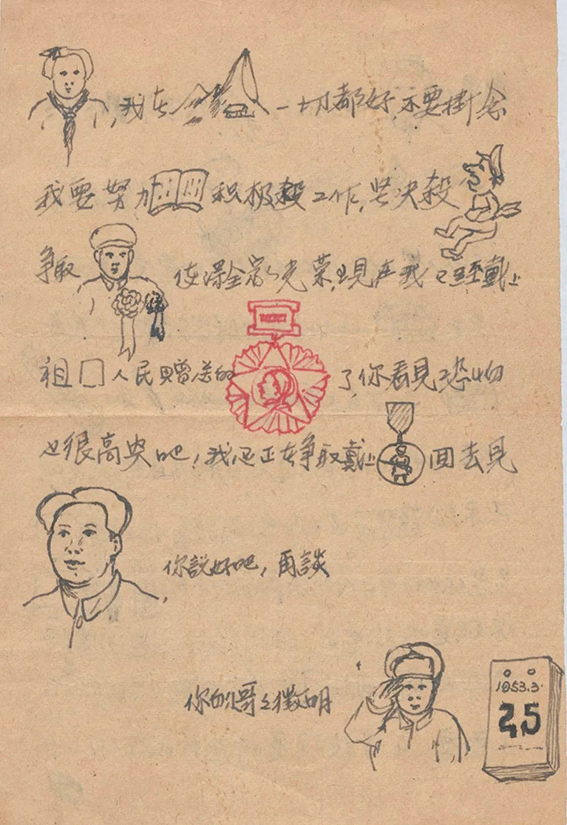 ,我在 一切都好,不要掛念
我要努力 积极工作,坚决殺
争取 使得全家光荣,现在我已經戴上
祖口人民贈送的 了,你看見恐怕
也很高興吧!我还正在争取戴上 回去見
你説好吧,再談
你的哥々徵明
1953.3.
25